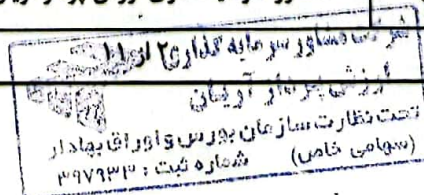 شرکت مشاور سرمایه گذاری ۲ از ۱۱
ارزش پرداز آریان
تحت نظارت سازمان بورس و اوراق بهادار
(سهامی خاص) شماره ثبت : ۳۹۷۹۳۳